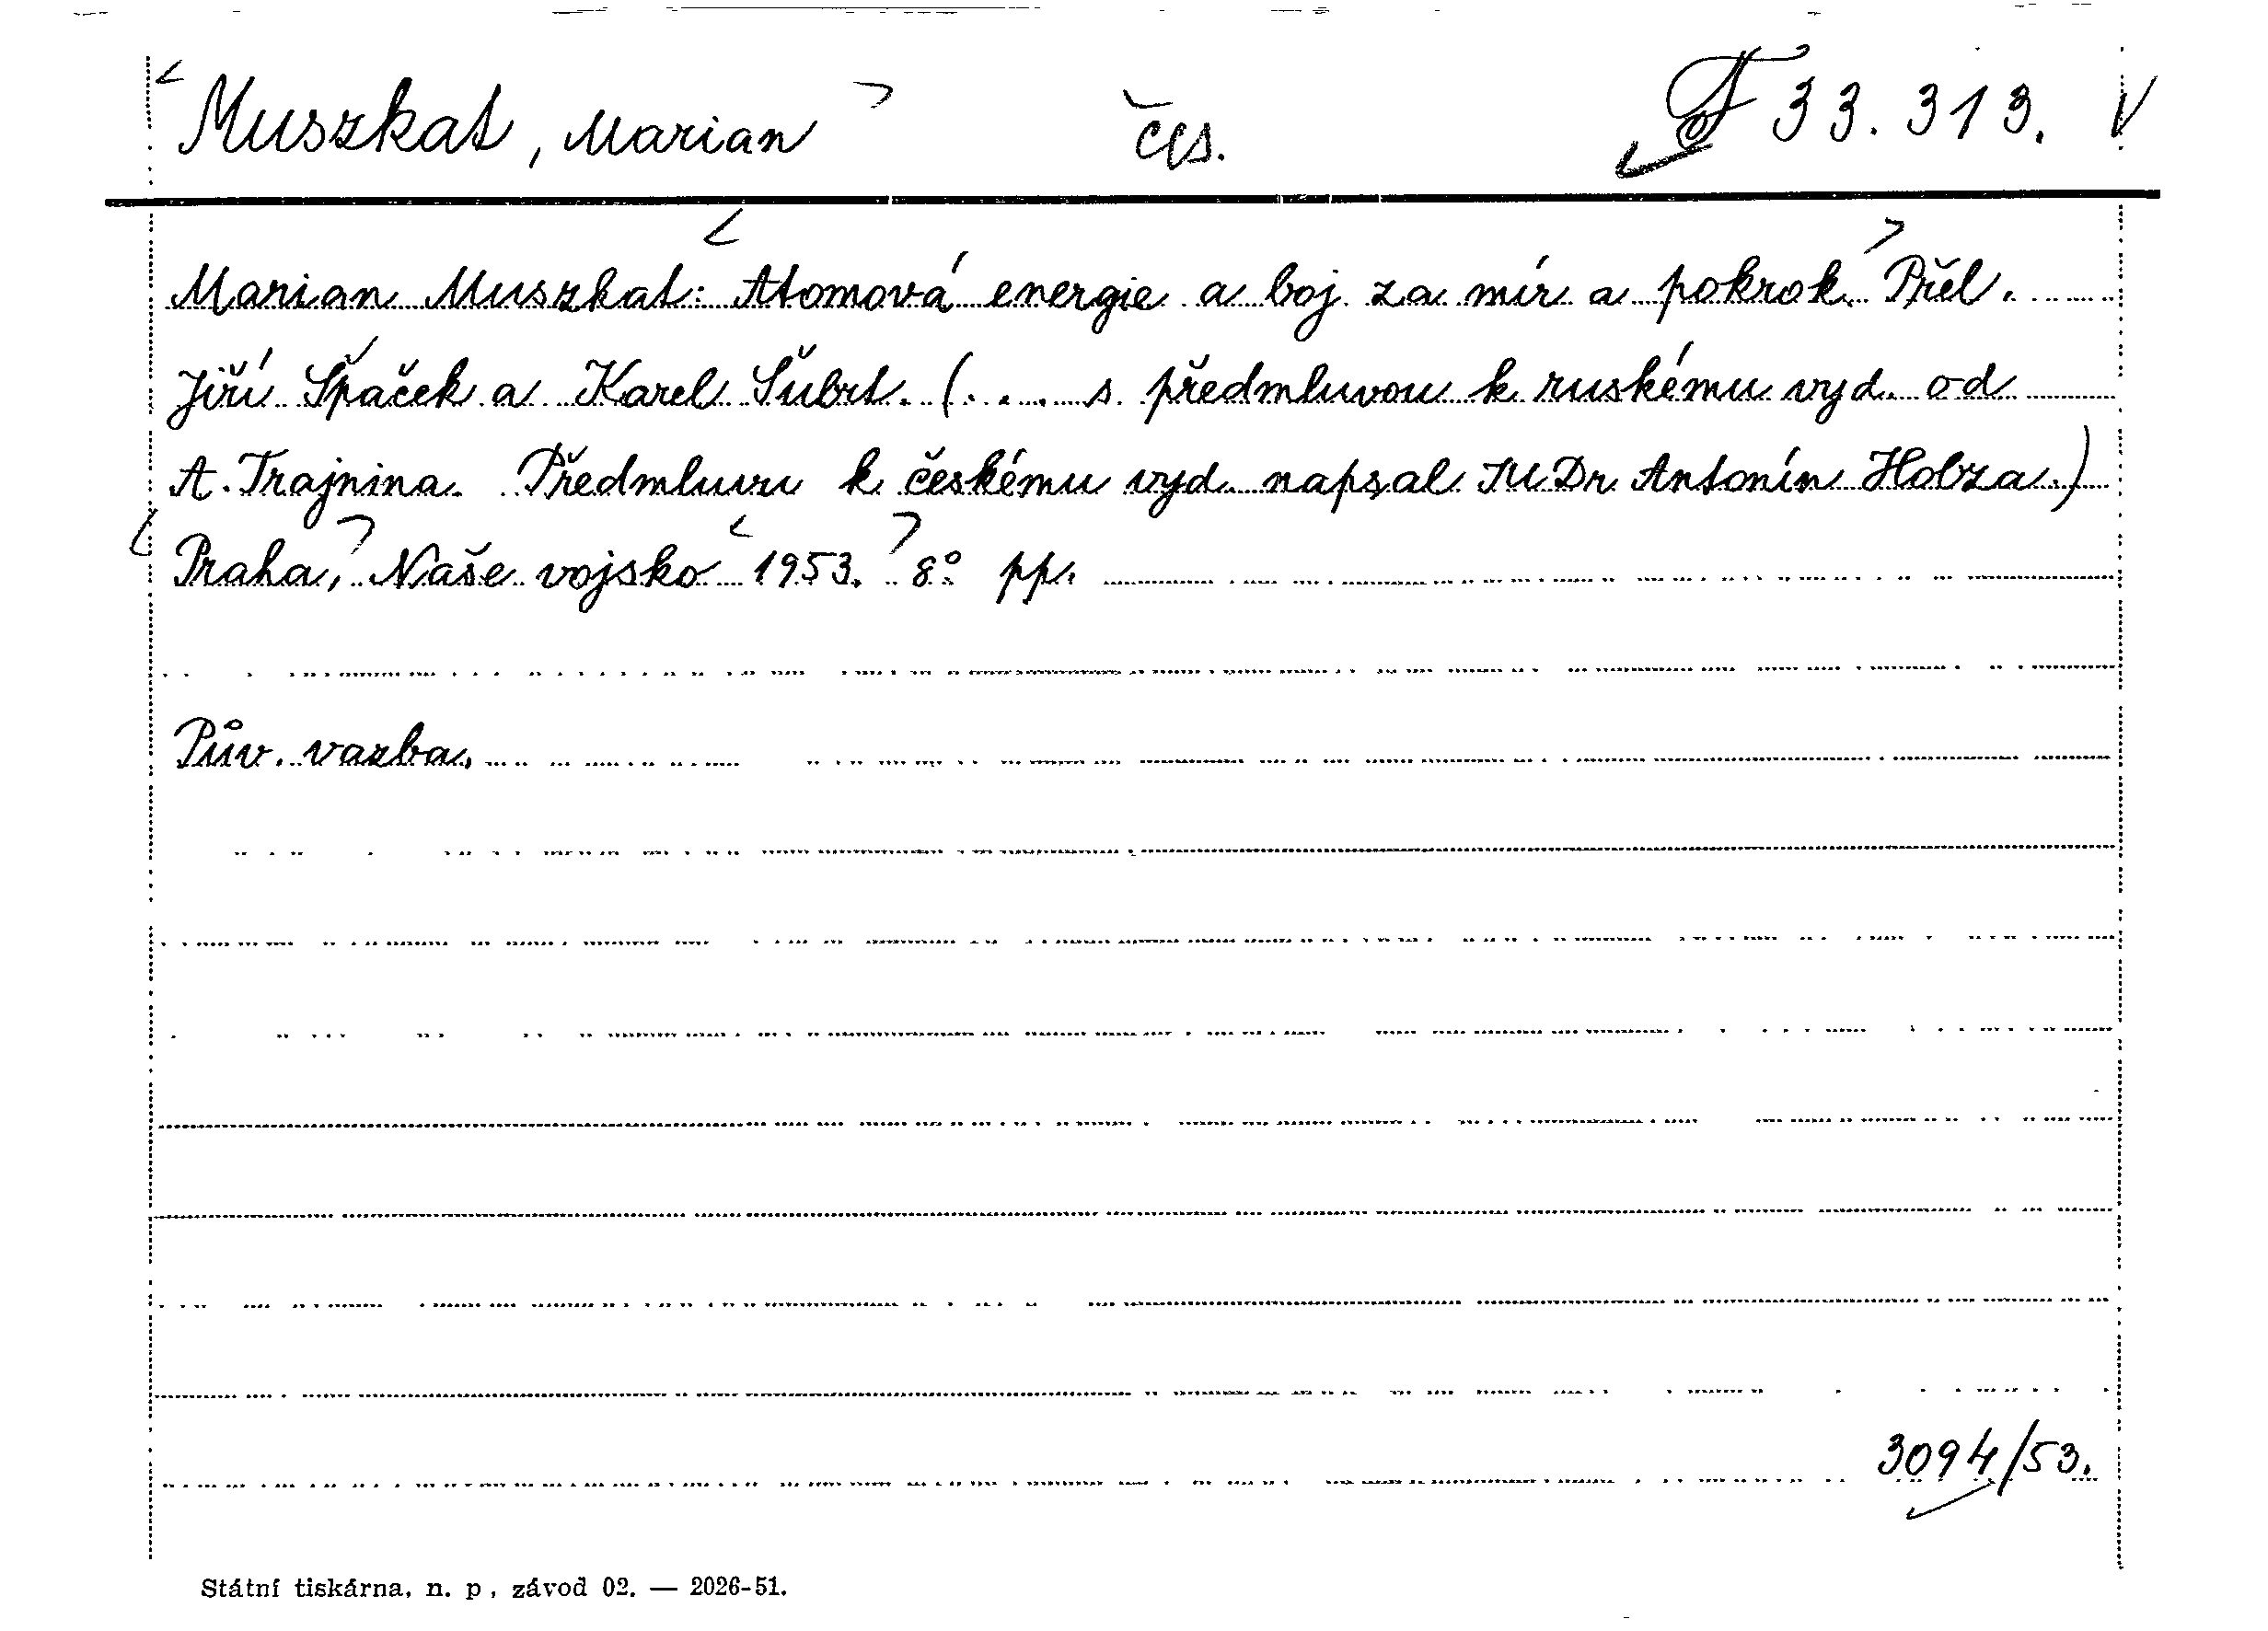 Muszkat, Marian čes. F 33.313. V
Marian Muszkat: Atomová energie a boj za mír a pokrok. Přel.
Jiří Špaček a Karel Šubrt. (... s předmluvou k ruskému vyd. od
A. Trajnina. Předmluvu k českému vyd. napsal JUDr Antonín Hobza.)
Praha, Naše vojsko 1953. 8° pp.
Pův. vazba.
3094/53.
Státní tiskárna, n. p., závod 02. — 2026-51.